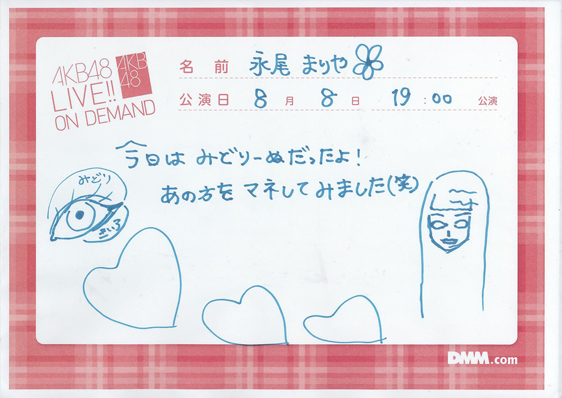 AKB48
LIVE!!
ON DEMAND
AKB
48
名前 永尾 まりや
公演日 8月 8日 19:00 公演
今日は みどりーぬだったよ!
あの方を マネしてみました(笑)
みどり
きいろ
DMM.com